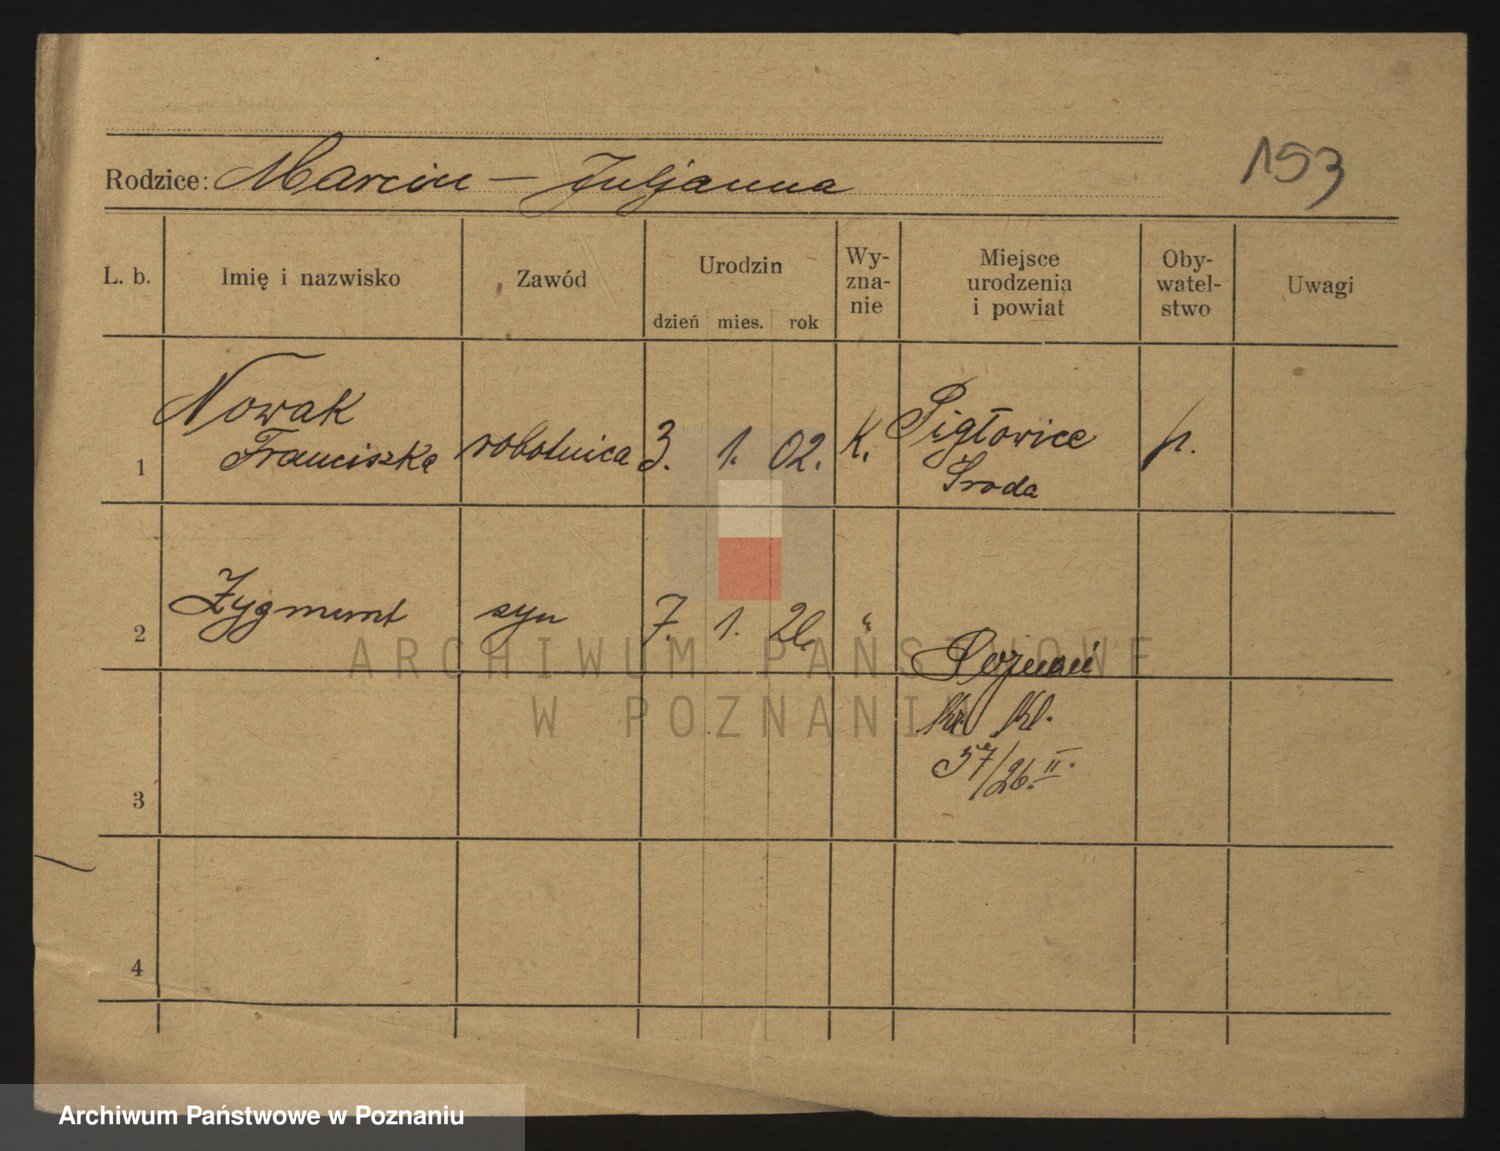 153
Rodzice: Marcin — Juljanna
L. b. Imię i nazwisko Zawód Urodzin dzień mies. rok Wy-zna-nie Miejsce urodzenia i powiat Oby-watel-stwo Uwagi
Nowak
1 Franciszka robotnica 3. 1. 02. K. Pigłowice p.
Środa
2 Zygmunt syn 7. 1. 26 "
Poznań
57/26 II.
3
4
ARCHIWUM PAŃSTWOWE
W POZNANIU
Archiwum Państwowe w Poznaniu